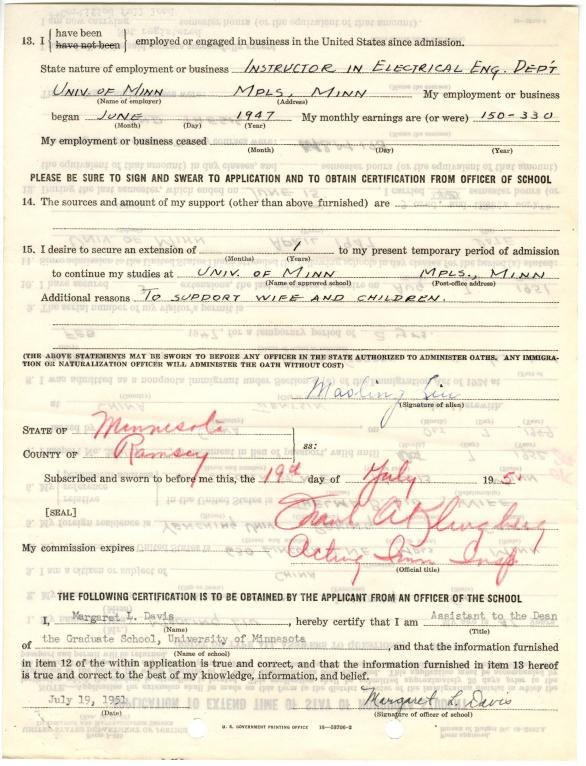 13. I { have been / have not been } employed or engaged in business in the United States since admission.
State nature of employment or business INSTRUCTOR IN ELECTRICAL ENG. DEP'T
UNIV. OF MINN MPLS, MINN My employment or business
(Name of employer) (Address)
began JUNE 1947 My monthly earnings are (or were) 150-330
(Month) (Day) (Year)
My employment or business ceased
(Month) (Day) (Year)
PLEASE BE SURE TO SIGN AND SWEAR TO APPLICATION AND TO OBTAIN CERTIFICATION FROM OFFICER OF SCHOOL
14. The sources and amount of my support (other than above furnished) are
15. I desire to secure an extension of 1 to my present temporary period of admission
(Months) (Years)
to continue my studies at UNIV. OF MINN MPLS., MINN
(Name of approved school) (Post-office address)
Additional reasons TO SUPPORT WIFE AND CHILDREN.
(THE ABOVE STATEMENTS MAY BE SWORN TO BEFORE ANY OFFICER IN THE STATE AUTHORIZED TO ADMINISTER OATHS. ANY IMMIGRA-
TION OR NATURALIZATION OFFICER WILL ADMINISTER THE OATH WITHOUT COST)
Maoling Liu
(Signature of alien)
STATE OF Minnesota
ss:
COUNTY OF Ramsey
Subscribed and sworn to before me this, the 19th day of July 19 51
[SEAL]
My commission expires Acting Imm Insp
(Official title)
THE FOLLOWING CERTIFICATION IS TO BE OBTAINED BY THE APPLICANT FROM AN OFFICER OF THE SCHOOL
I, Margaret L. Davis, hereby certify that I am Assistant to the Dean
(Name) (Title)
of the Graduate School, University of Minnesota, and that the information furnished
(Name of school)
in item 12 of the within application is true and correct, and that the information furnished in item 13 hereof
is true and correct to the best of my knowledge, information, and belief.
July 19, 1951 Margaret L. Davis
(Date) (Signature of officer of school)
U. S. GOVERNMENT PRINTING OFFICE 16—53706-2